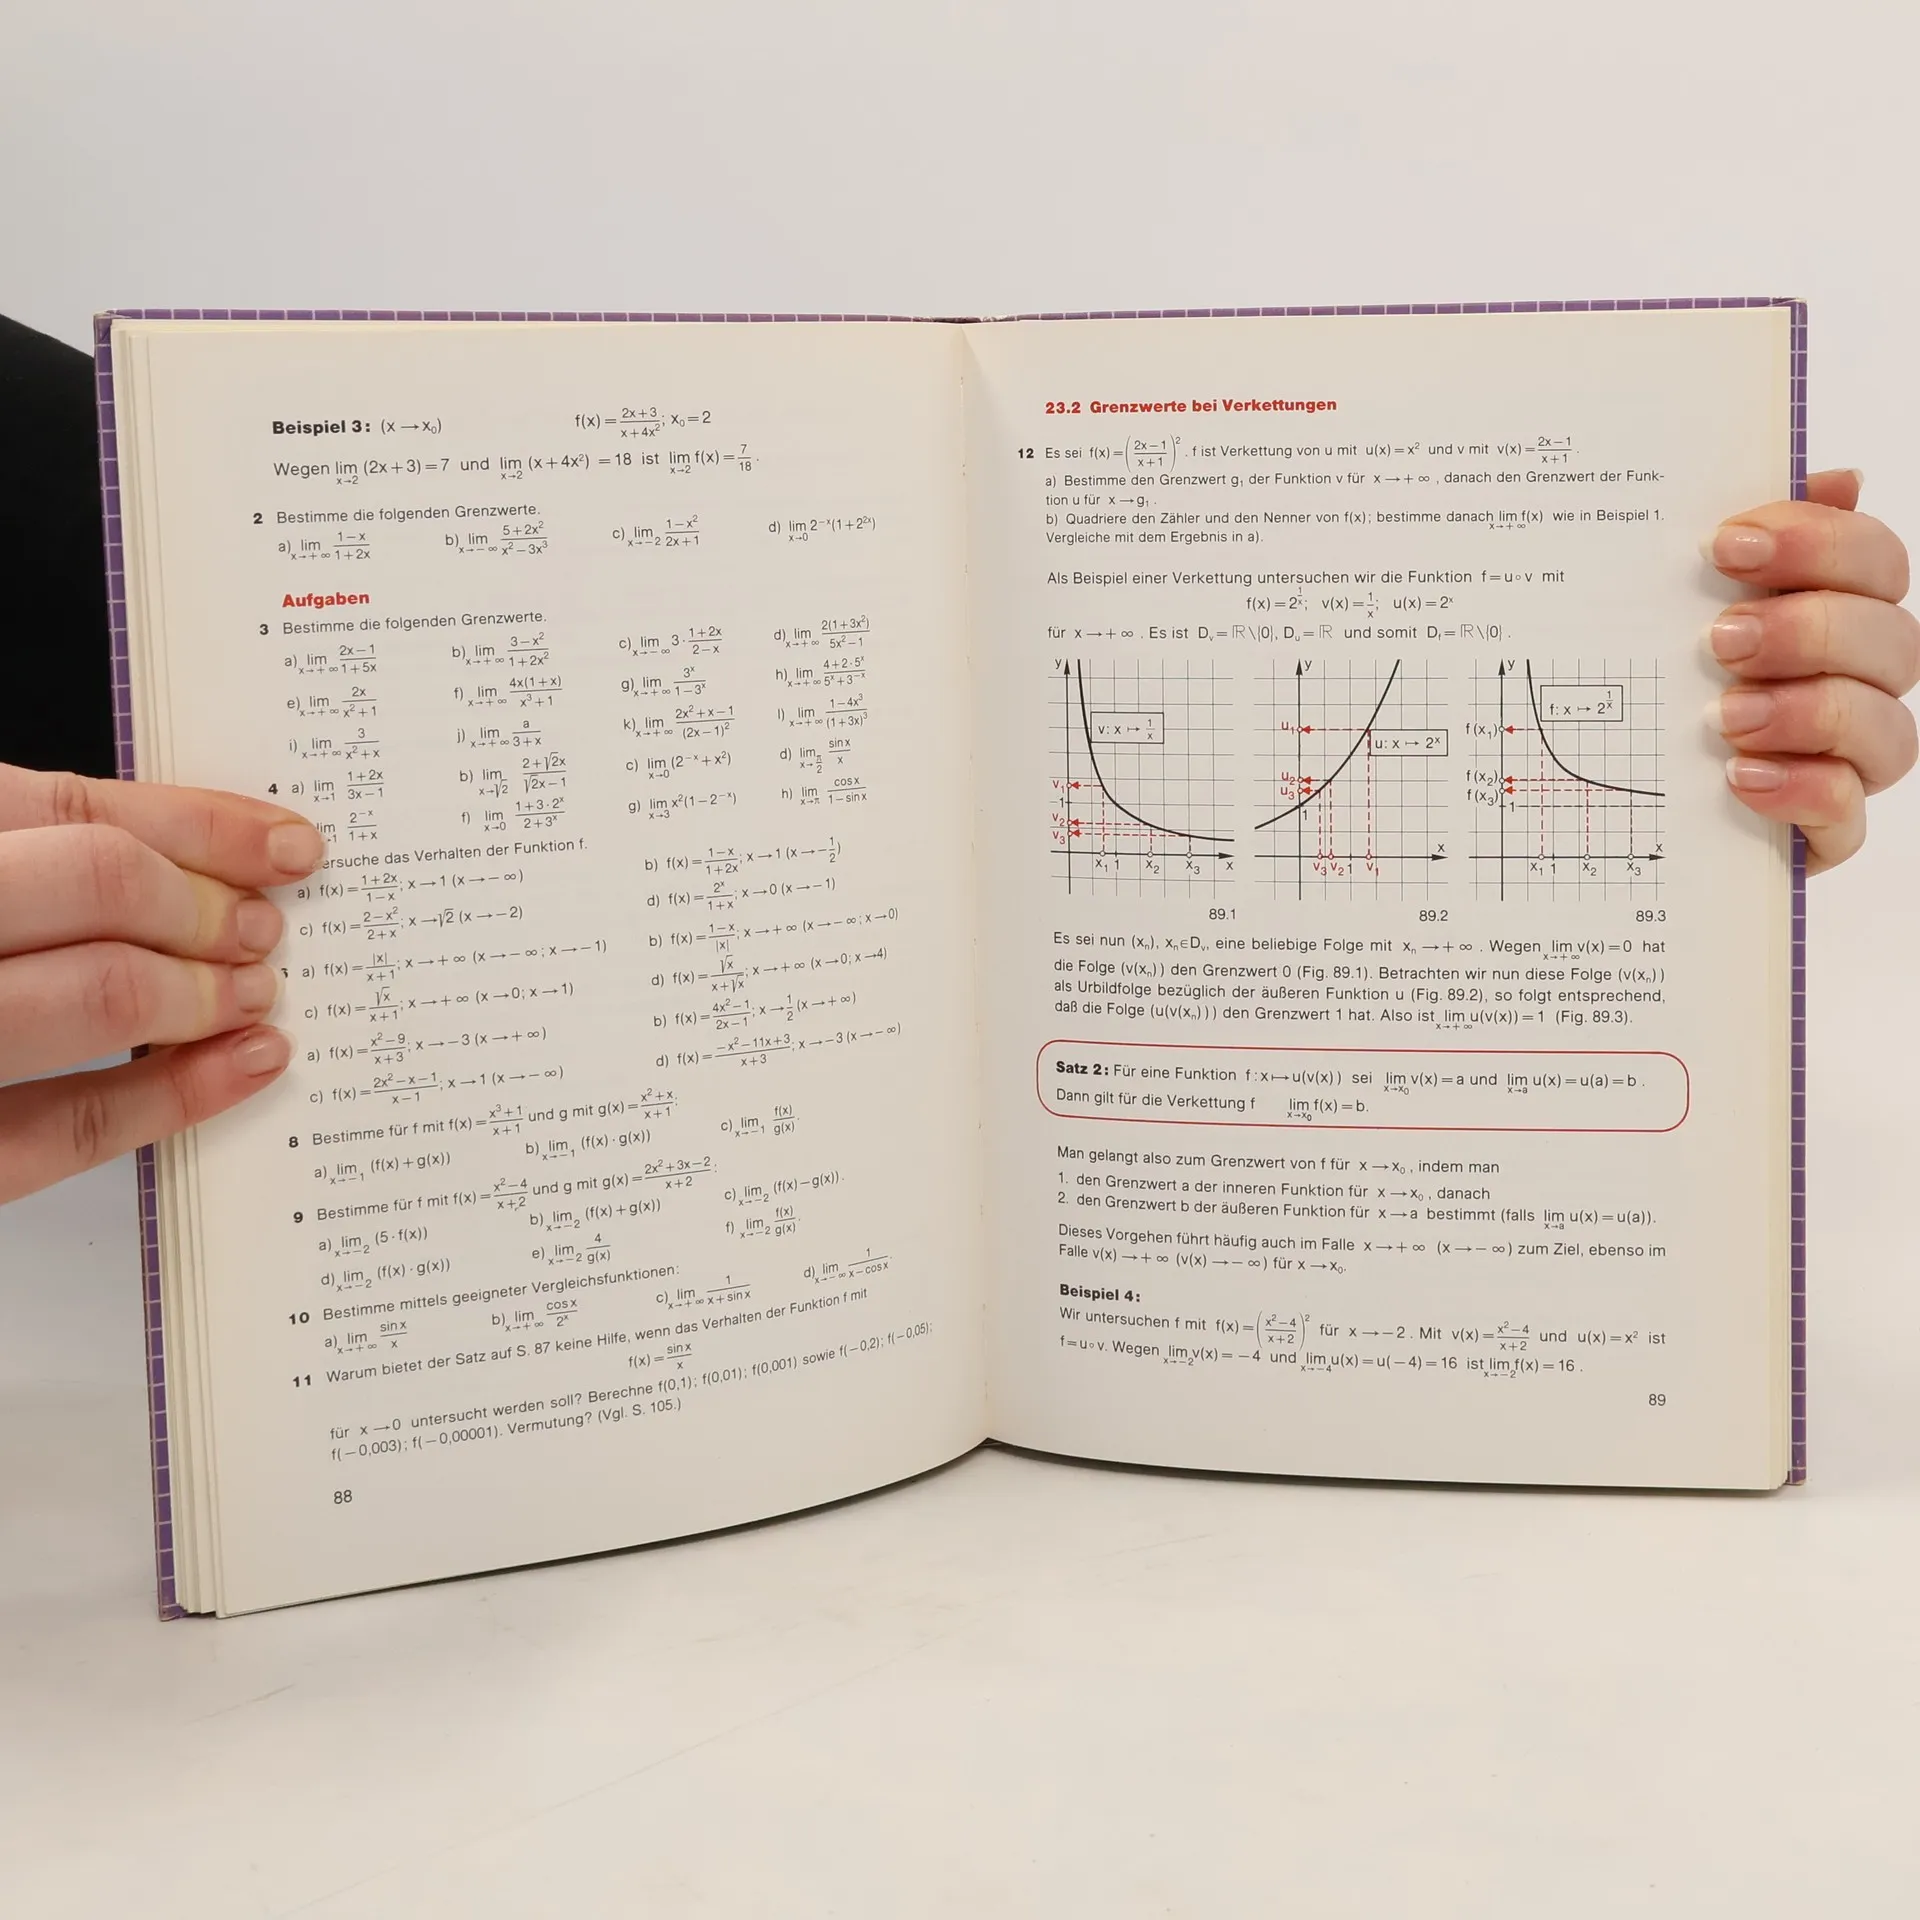 Beispiel 3: (x → x₀) f(x) = (2x+3)/(x+4x²); x₀ = 2
Wegen lim x→2 (2x+3) = 7 und lim x→2 (x+4x²) = 18 ist lim x→2 f(x) = 7/18.
2 Bestimme die folgenden Grenzwerte.
a) lim x→+∞ (1−x)/(1+2x) b) lim x→−∞ (5+2x²)/(x²−3x³) c) lim x→−2 (1−x²)/(2x+1) d) lim x→0 2⁻ˣ(1+2²ˣ)
Aufgaben
3 Bestimme die folgenden Grenzwerte.
a) lim x→+∞ (2x−1)/(1+5x) b) lim x→+∞ (3−x²)/(1+2x²) c) lim x→−∞ 3·(1+2x)/(2−x) d) lim x→+∞ 2(1+3x²)/(5x²−1)
e) lim x→+∞ 2x/(x²+1) f) lim x→+∞ 4x(1+x)/(x³+1) g) lim x→+∞ 3ˣ/(1−3ˣ) h) lim x→+∞ (4+2·5ˣ)/(5ˣ+3⁻ˣ)
i) lim x→+∞ 3/(x²+x) j) lim x→+∞ a/(3+x) k) lim x→+∞ (2x²+x−1)/(2x−1)² l) lim x→+∞ (1−4x³)/(1+3x)³
4 a) lim x→1 (1+2x)/(3x−1) b) lim x→√2 (2+√2x)/(√2x−1) c) lim x→0 (2⁻ˣ+x²) d) lim x→π/2 sin x/x
lim 2⁻ˣ/(1+x) f) lim x→0 (1+3·2ˣ)/(2+3ˣ) g) lim x→3 x²(1−2⁻ˣ) h) lim x→π cos x/(1−sin x)
ersuche das Verhalten der Funktion f.
a) f(x) = (1+2x)/(1−x); x→1 (x→−∞) b) f(x) = (1−x)/(1+2x); x→1 (x→−1/2)
c) f(x) = (2−x²)/(2+x); x→√2 (x→−2) d) f(x) = 2ˣ/(1+x); x→0 (x→−1)
a) f(x) = |x|/(x+1); x→+∞ (x→−∞; x→−1) b) f(x) = (1−x)/|x|; x→+∞ (x→−∞; x→0)
c) f(x) = √x/(x+1); x→+∞ (x→0; x→1) d) f(x) = √x/(x+√x); x→+∞ (x→0; x→4)
a) f(x) = (x²−9)/(x+3); x→−3 (x→+∞) b) f(x) = (4x²−1)/(2x−1); x→1/2 (x→+∞)
c) f(x) = (2x²−x−1)/(x−1); x→1 (x→−∞) d) f(x) = (−x²−11x+3)/(x+3); x→−3 (x→−∞)
8 Bestimme für f mit f(x) = (x³+1)/(x+1) und g mit g(x) = (x²+x)/(x+1):
a) lim x→−1 (f(x)+g(x)) b) lim x→−1 (f(x)·g(x)) c) lim x→−1 f(x)/g(x).
9 Bestimme für f mit f(x) = (x²−4)/(x+2) und g mit g(x) = (2x²+3x−2)/(x+2):
a) lim x→−2 (5·f(x)) b) lim x→−2 (f(x)+g(x)) c) lim x→−2 (f(x)−g(x)).
d) lim x→−2 (f(x)·g(x)) e) lim x→−2 4/g(x) f) lim x→−2 f(x)/g(x).
10 Bestimme mittels geeigneter Vergleichsfunktionen:
a) lim x→+∞ sin x/x b) lim x→+∞ cos x/2ˣ c) lim x→+∞ 1/(x+sin x) d) lim x→−∞ 1/(x−cos x).
11 Warum bietet der Satz auf S. 87 keine Hilfe, wenn das Verhalten der Funktion f mit
f(x) = sin x/x
für x→0 untersucht werden soll? Berechne f(0,1); f(0,01); f(0,001) sowie f(−0,2); f(−0,05);
f(−0,003); f(−0,00001). Vermutung? (Vgl. S. 105.)
88
23.2 Grenzwerte bei Verkettungen
12 Es sei f(x) = ((2x−1)/(x+1))². f ist Verkettung von u mit u(x) = x² und v mit v(x) = (2x−1)/(x+1).
a) Bestimme den Grenzwert g₁ der Funktion v für x→+∞, danach den Grenzwert der Funk-
tion u für x→g₁.
b) Quadriere den Zähler und den Nenner von f(x); bestimme danach lim x→+∞ f(x) wie in Beispiel 1.
Vergleiche mit dem Ergebnis in a).
Als Beispiel einer Verkettung untersuchen wir die Funktion f = u∘v mit
f(x) = 2^(1/x); v(x) = 1/x; u(x) = 2ˣ
für x→+∞. Es ist Dᵥ = ℝ\{0}, Dᵤ = ℝ und somit D_f = ℝ\{0}.
y v: x ↦ 1/x v₁ 1 v₂ v₃ x₁ 1 x₂ x₃ x
y u₁ u: x ↦ 2ˣ u₂ u₃ 1 v₃ v₂ 1 v₁ x
y f: x ↦ 2^(1/x) f(x₁) f(x₂) f(x₃) 1 x₁ 1 x₂ x₃ x
89.1 89.2 89.3
Es sei nun (xₙ), xₙ∈Dᵥ, eine beliebige Folge mit xₙ→+∞. Wegen lim x→+∞ v(x) = 0 hat
die Folge (v(xₙ)) den Grenzwert 0 (Fig. 89.1). Betrachten wir nun diese Folge (v(xₙ))
als Urbildfolge bezüglich der äußeren Funktion u (Fig. 89.2), so folgt entsprechend,
daß die Folge (u(v(xₙ))) den Grenzwert 1 hat. Also ist lim x→+∞ u(v(x)) = 1 (Fig. 89.3).
Satz 2: Für eine Funktion f: x↦u(v(x)) sei lim x→x₀ v(x) = a und lim x→a u(x) = u(a) = b.
Dann gilt für die Verkettung f lim x→x₀ f(x) = b.
Man gelangt also zum Grenzwert von f für x→x₀, indem man
1. den Grenzwert a der inneren Funktion für x→x₀, danach
2. den Grenzwert b der äußeren Funktion für x→a bestimmt (falls lim x→a u(x) = u(a)).
Dieses Vorgehen führt häufig auch im Falle x→+∞ (x→−∞) zum Ziel, ebenso im
Falle v(x)→+∞ (v(x)→−∞) für x→x₀.
Beispiel 4:
Wir untersuchen f mit f(x) = ((x²−4)/(x+2))² für x→−2. Mit v(x) = (x²−4)/(x+2) und u(x) = x² ist
f = u∘v. Wegen lim x→−2 v(x) = −4 und lim x→−4 u(x) = u(−4) = 16 ist lim x→−2 f(x) = 16.
89